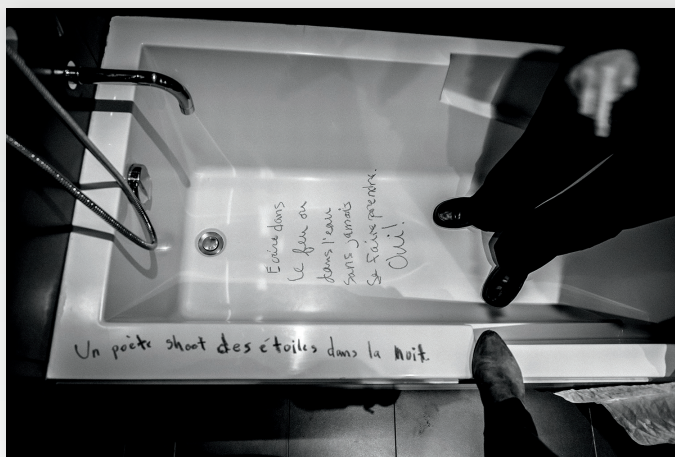 Ecrire dans
le feu ou
dans l'eau
sans jamais
se faire prendre.
Oui!
Un poète shoot des étoiles dans la nuit.